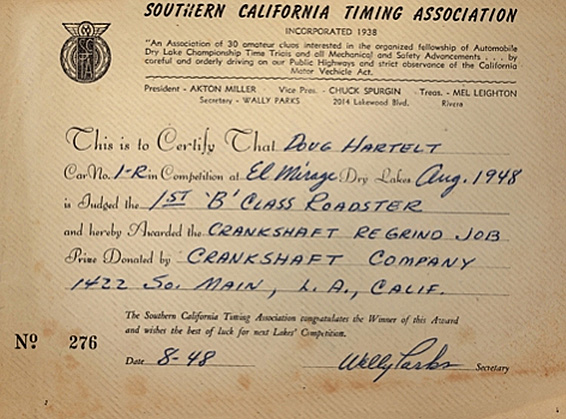 SOUTHERN CALIFORNIA TIMING ASSOCIATION
INCORPORATED 1938
"An Association of 30 amateur clubs interested in the organized fellowship of Automobile
Dry Lake Championship Time Trials and all Mechanical and Safety Advancements . . . by
careful and orderly driving on our Public Highways and strict observance of the California
Motor Vechicle Act.
President - AKTON MILLER Vice Pres. - CHUCK SPURGIN Treas. - MEL LEIGHTON
Secretary - WALLY PARKS 2014 Lakewood Blvd. Rivera
SCTA
This is to Certify That DOUG HARTELT
Car No. 1-R in Competition at El Mirage Dry Lakes Aug. 1948
is Judged the 1ST 'B' CLASS ROADSTER
and hereby Awarded the CRANKSHAFT REGRIND JOB
Prize Donated by CRANKSHAFT COMPANY
1422 So. MAIN, L.A., CALIF.
The Southern California Timing Association congratulates the Winner of this Award
and wishes the best of luck for next Lakes' Competition.
No 276
Date 8-48 Wally Parks Secretary